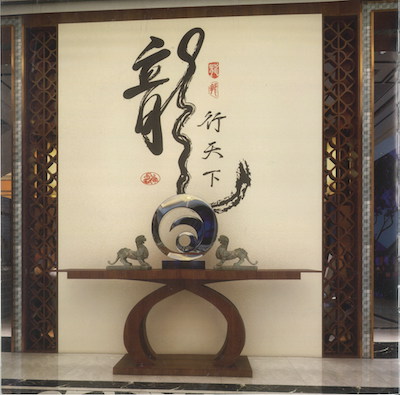 龍
行天下